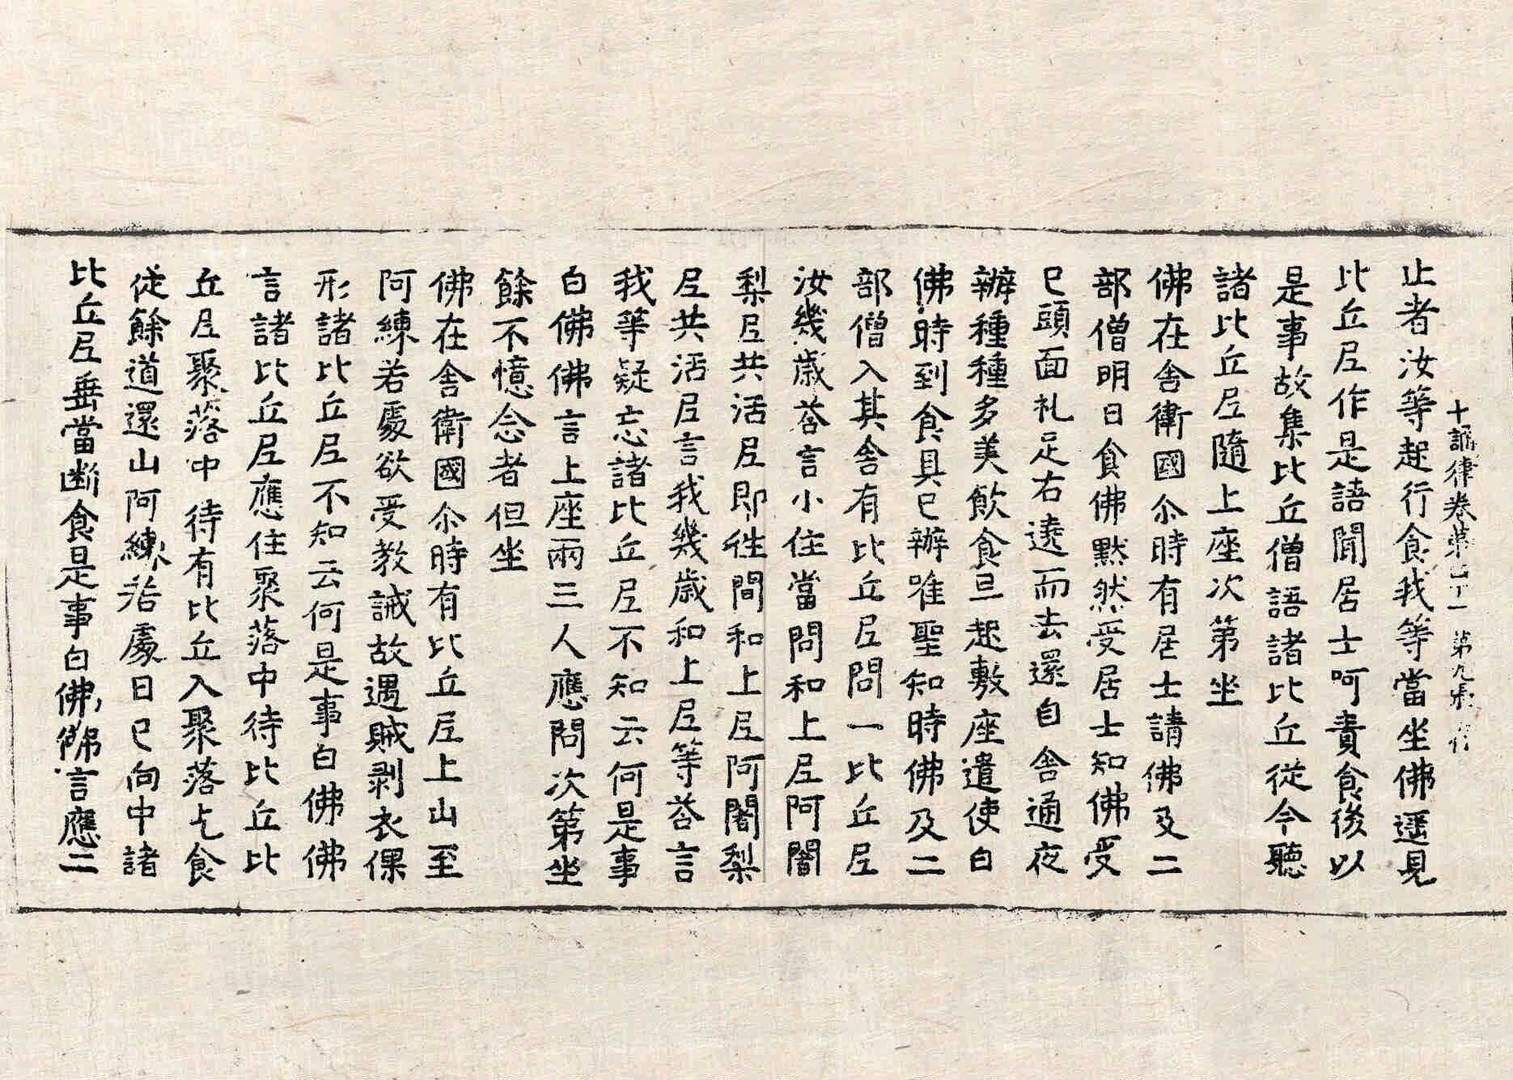 十誦律卷第四十一 第九張
止者汝等起行食我等當坐佛遥見
比丘尼作是語聞居士呵責食後以
是事故集比丘僧語諸比丘從今聽
諸比丘尼隨上座次第坐
佛在舍衛國尒時有居士請佛及二
部僧明日食佛黙然受居士知佛受
已頭面礼足右遶而去還自舍通夜
辦種種多美飲食旦起敷座遣使白
佛時到食具已辦唯聖知時佛及二
部僧入其舍有比丘尼問一比丘尼
汝幾歳荅言小住當問和上尼阿闍
梨尼共活尼即徃問和上尼阿闍梨
尼共活尼言我幾歳和上尼等荅言
我等疑忘諸比丘尼不知云何是事
白佛佛言上座兩三人應問次第坐
餘不憶念者但坐
佛在舍衛國尒時有比丘尼上山至
阿練若處欲受教誡故遇賊剥衣倮
形諸比丘尼不知云何是事白佛佛
言諸比丘尼應住聚落中待比丘比
丘尼聚落中待有比丘入聚落乞食
從餘道還山阿練若處日已向中諸
比丘尼垂當断食是事白佛佛言應二